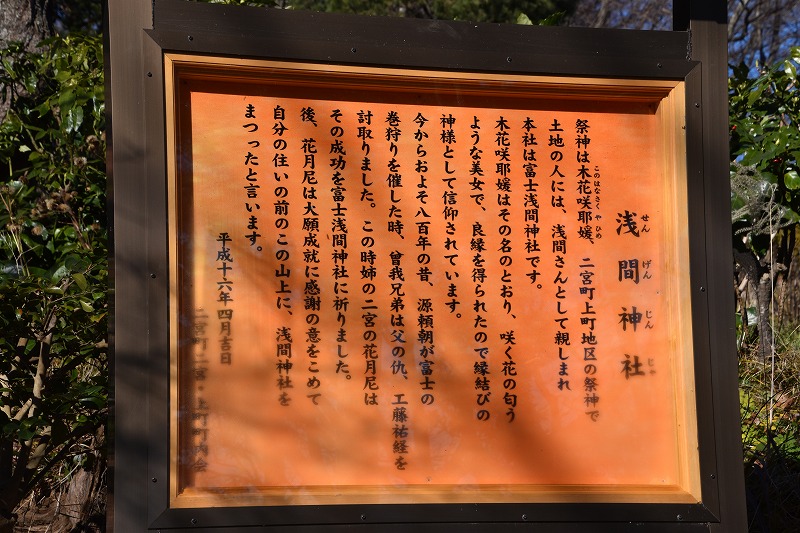 浅間神社
せんげんじんじゃ
このはなさくやひめ
祭神は木花咲耶媛、二宮町上町地区の祭神で
土地の人には、浅間さんとして親しまれ
本社は富士浅間神社です。
木花咲耶媛はその名のとおり、咲く花の匂う
ような美女で、良縁を得られたので縁結びの
神様として信仰されています。
今からおよそ八百年の昔、源頼朝が富士の
巻狩りを催した時、曾我兄弟は父の仇、工藤祐経を
討取りました。この時姉の二宮の花月尼は
その成功を富士浅間神社に祈りました。
後、花月尼は大願成就に感謝の意をこめて
自分の住いの前のこの山上に、浅間神社を
まつったと言います。
平成十六年四月吉日
二宮町二宮・上町町内会